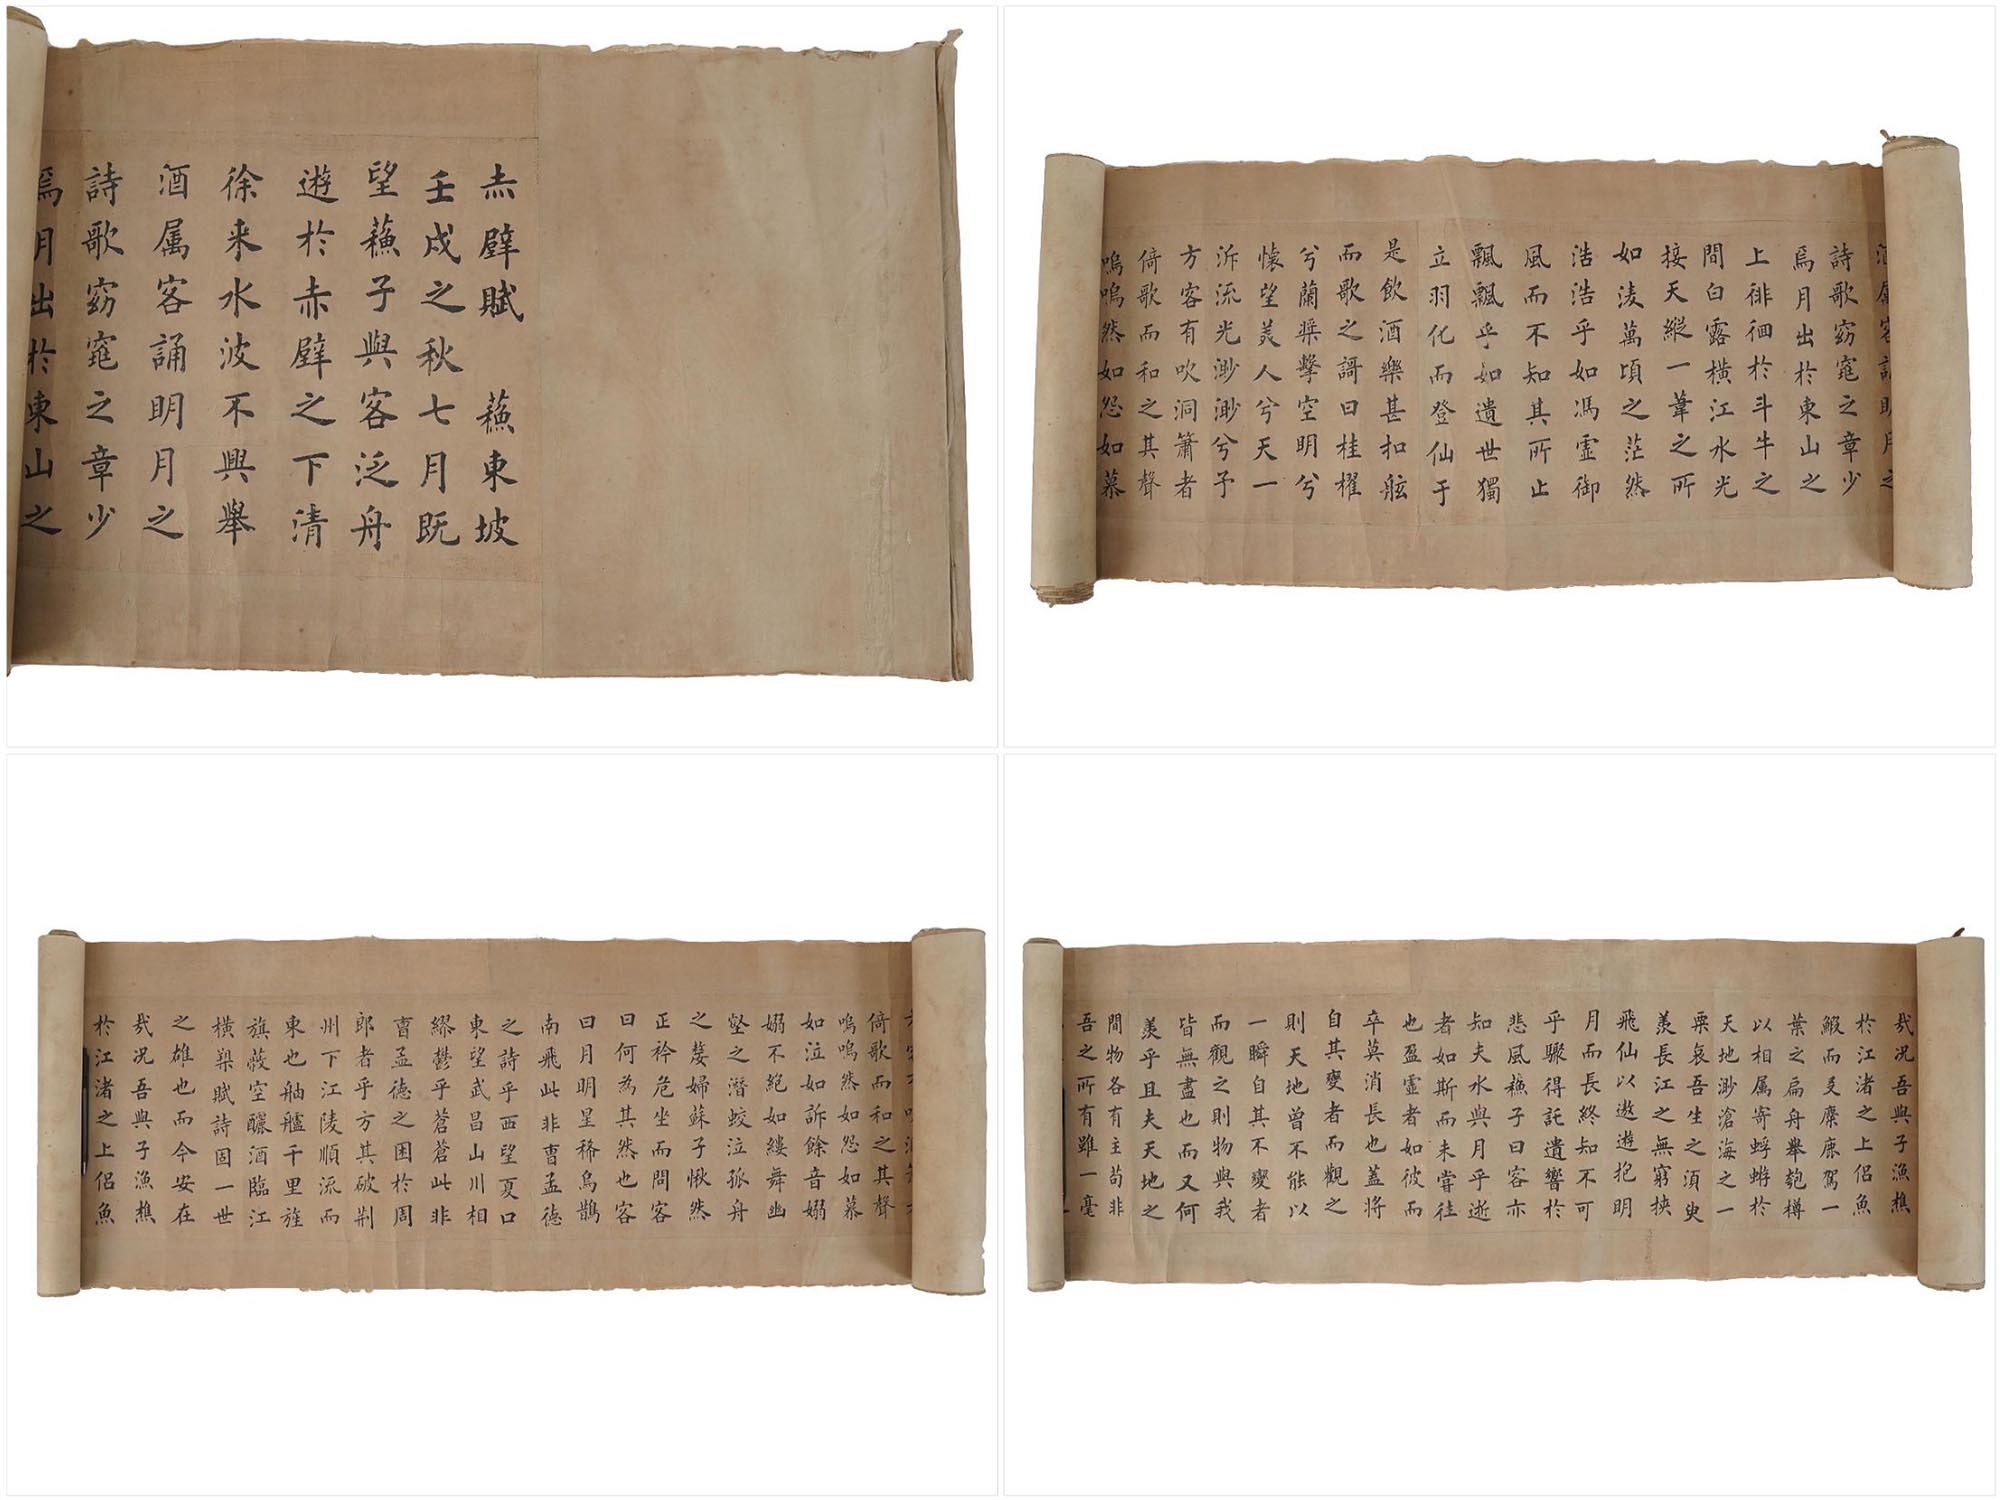 赤壁賦 蘓東坡
壬戌之秋七月既
望蘓子與客泛舟
遊於赤壁之下清
徐来水波不興舉
酒属客誦明月之
詩歌窈窕之章少
焉月出於東山之
詩歌窈窕之章少
焉月出於東山之
上徘徊於斗牛之
間白露橫江水光
接天縱一葦之所
如淩萬頃之茫然
浩浩乎如馮虛御
風而不知其所止
飄飄乎如遺世獨
立羽化而登仙于
是飲酒樂甚扣舷
而歌之謌曰桂櫂
兮蘭槳擊空明兮
懷望美人兮天一
泝流光渺渺兮予
方客有吹洞簫者
倚歌而和之其聲
嗚嗚然如怨如慕
倚歌而和之其聲
嗚嗚然如怨如慕
如泣如訴餘音嫋
嫋不絕如縷舞幽
壑之潛蛟泣孤舟
之嫠婦蘇子愀然
正衿危坐而問客
曰何為其然也客
曰月明星稀烏鵲
南飛此非曹孟德
之詩乎西望夏口
東望武昌山川相
繆鬱乎蒼蒼此非
曹孟德之困於周
郎者乎方其破荆
州下江陵順流而
東也舳艫千里旌
旗蔽空釃酒臨江
橫槊賦詩固一世
之雄也而今安在
哉况吾與子漁樵
於江渚之上侣魚
哉况吾與子漁樵
於江渚之上侣魚
鰕而友麋鹿駕一
葉之扁舟舉匏樽
以相属寄蜉蝣於
天地渺滄海之一
粟哀吾生之須臾
羨長江之無窮挾
飛仙以遨遊抱明
月而長終知不可
乎驟得託遺響於
悲風蘓子曰客亦
知夫水與月乎逝
者如斯而未嘗往
也盈虛者如彼而
卒莫消長也蓋將
自其變者而觀之
則天地曾不能以
一瞬自其不變者
而觀之則物與我
皆無盡也而又何
羨乎且夫天地之
間物各有主苟非
吾之所有雖一毫